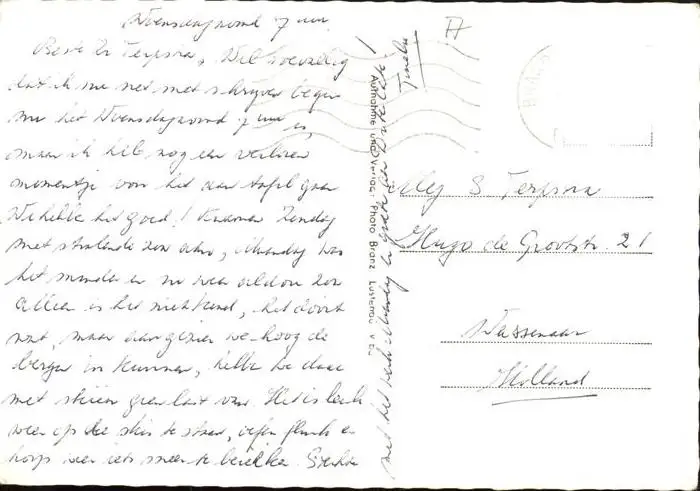 Woensdagavond 7 uur.
Beste Terpstra, Wel toevallig
dat ik nu net met schrijven begin
nu het Woensdagavond 7 uur is,
maar ik heb nog een verloren
momentje voor het aan tafel gaan
We hebben het goed! Kwamen Zondag
met stralende zon aan, Maandag was
het minder en nu weer aldoor zon
alleen is het niet koud, het dooit
wat, maar aangezien we hoog de
bergen in kunnen, hebben we daar
met skiën geen last van. Het is leuk
weer op de skis te staan, oefen flink en
hoop weer iets meer te bereiken.
met het
Tineke
Aufnahme und Verlag: Photo Branz, Lustenau
S Terpstra
Hugo de Grootstr. 21
Wassenaar
Holland